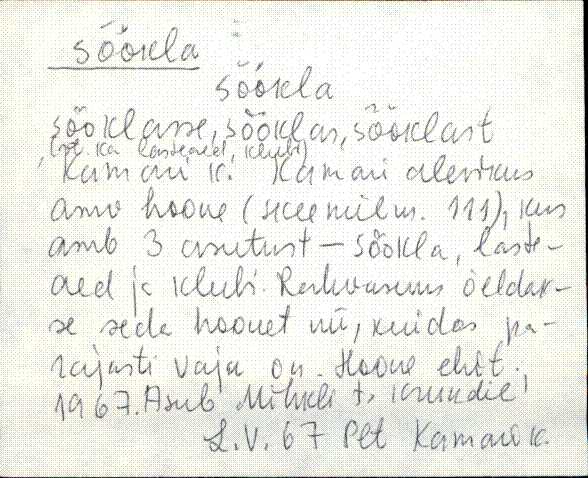 söökla
söökla
sööklasse, sööklas, sööklast
(vt. ka lasteaed, klubi)
Kamari k. Kamari alevikus
asuv hoone (skeemil nr. 111), kus
asub 3 asutust – söökla, laste-
aed ja klubi. Rahvasuus öeldak-
se seda hoonet nii, kuidas pa-
rajasti vaja on. Hoone ehit.
1967. Asub Mihkli t. krundil,
L.V. 67 Plt Kamari k.